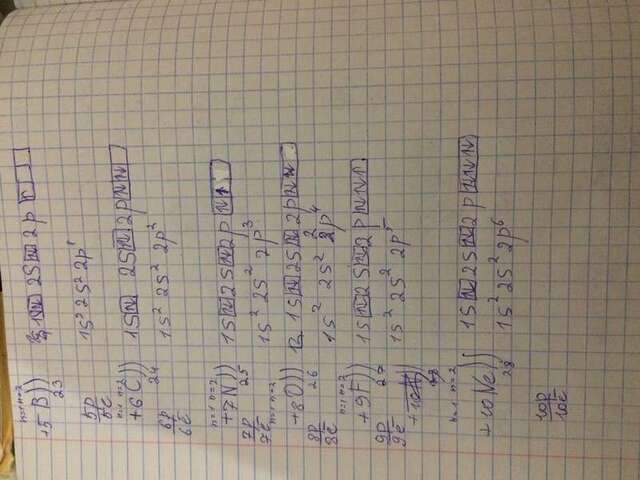 n=1 n=2
+5 B)) 1S 2S 2p
2 3
5p
5ē
1S² 2S² 2p¹
n=1 n=2
+6C)) 1S 2S 2p
2 4
6p
6ē
1S² 2S² 2p²
n=1 n=2
+7N)) 1S 2S 2p
2 5
7p
7ē
1S² 2S² 2p³
n=1 n=2
+8O)) 1S 2S 2p
2 6
8p
8ē
1S² 2S² 2p⁴
n=1 n=2
+9F)) 1S 2S 2p
2 7
9p
9ē
1S² 2S² 2p⁵
n=1 n=2
+10Ne)) 1S 2S 2p
2 8
1S² 2S² 2p⁶
10p
10ē